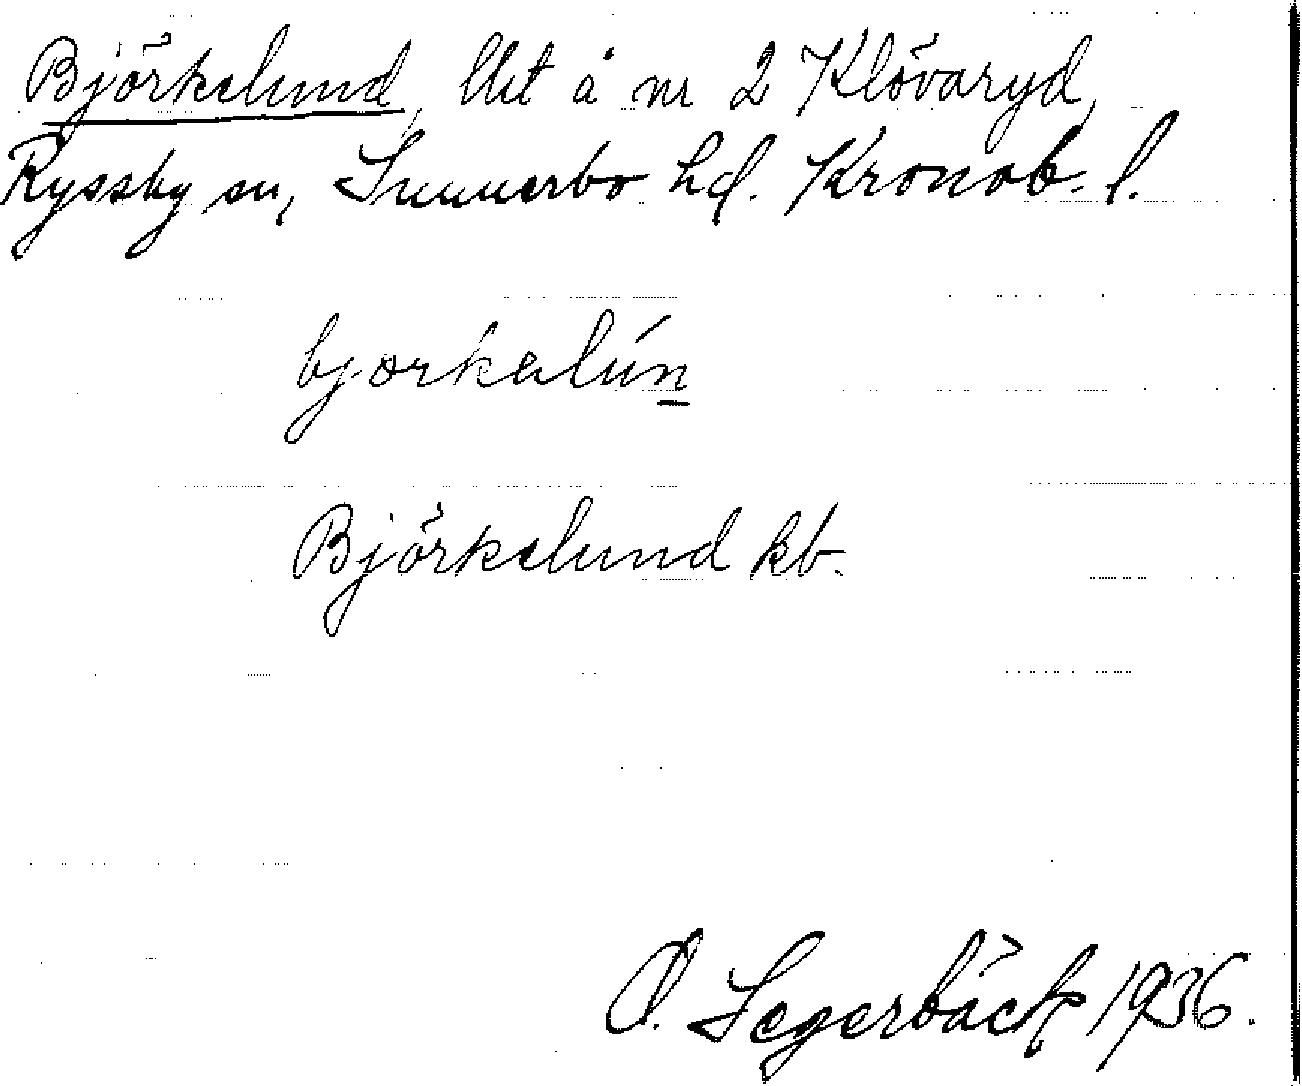 Björkelund, lht å nr 2 Klövaryd,
Ryssby sn, Sunnerbo hd. Kronob. l.
bjorkalún
Björkelund kb.
O. Segerbäck 1936.